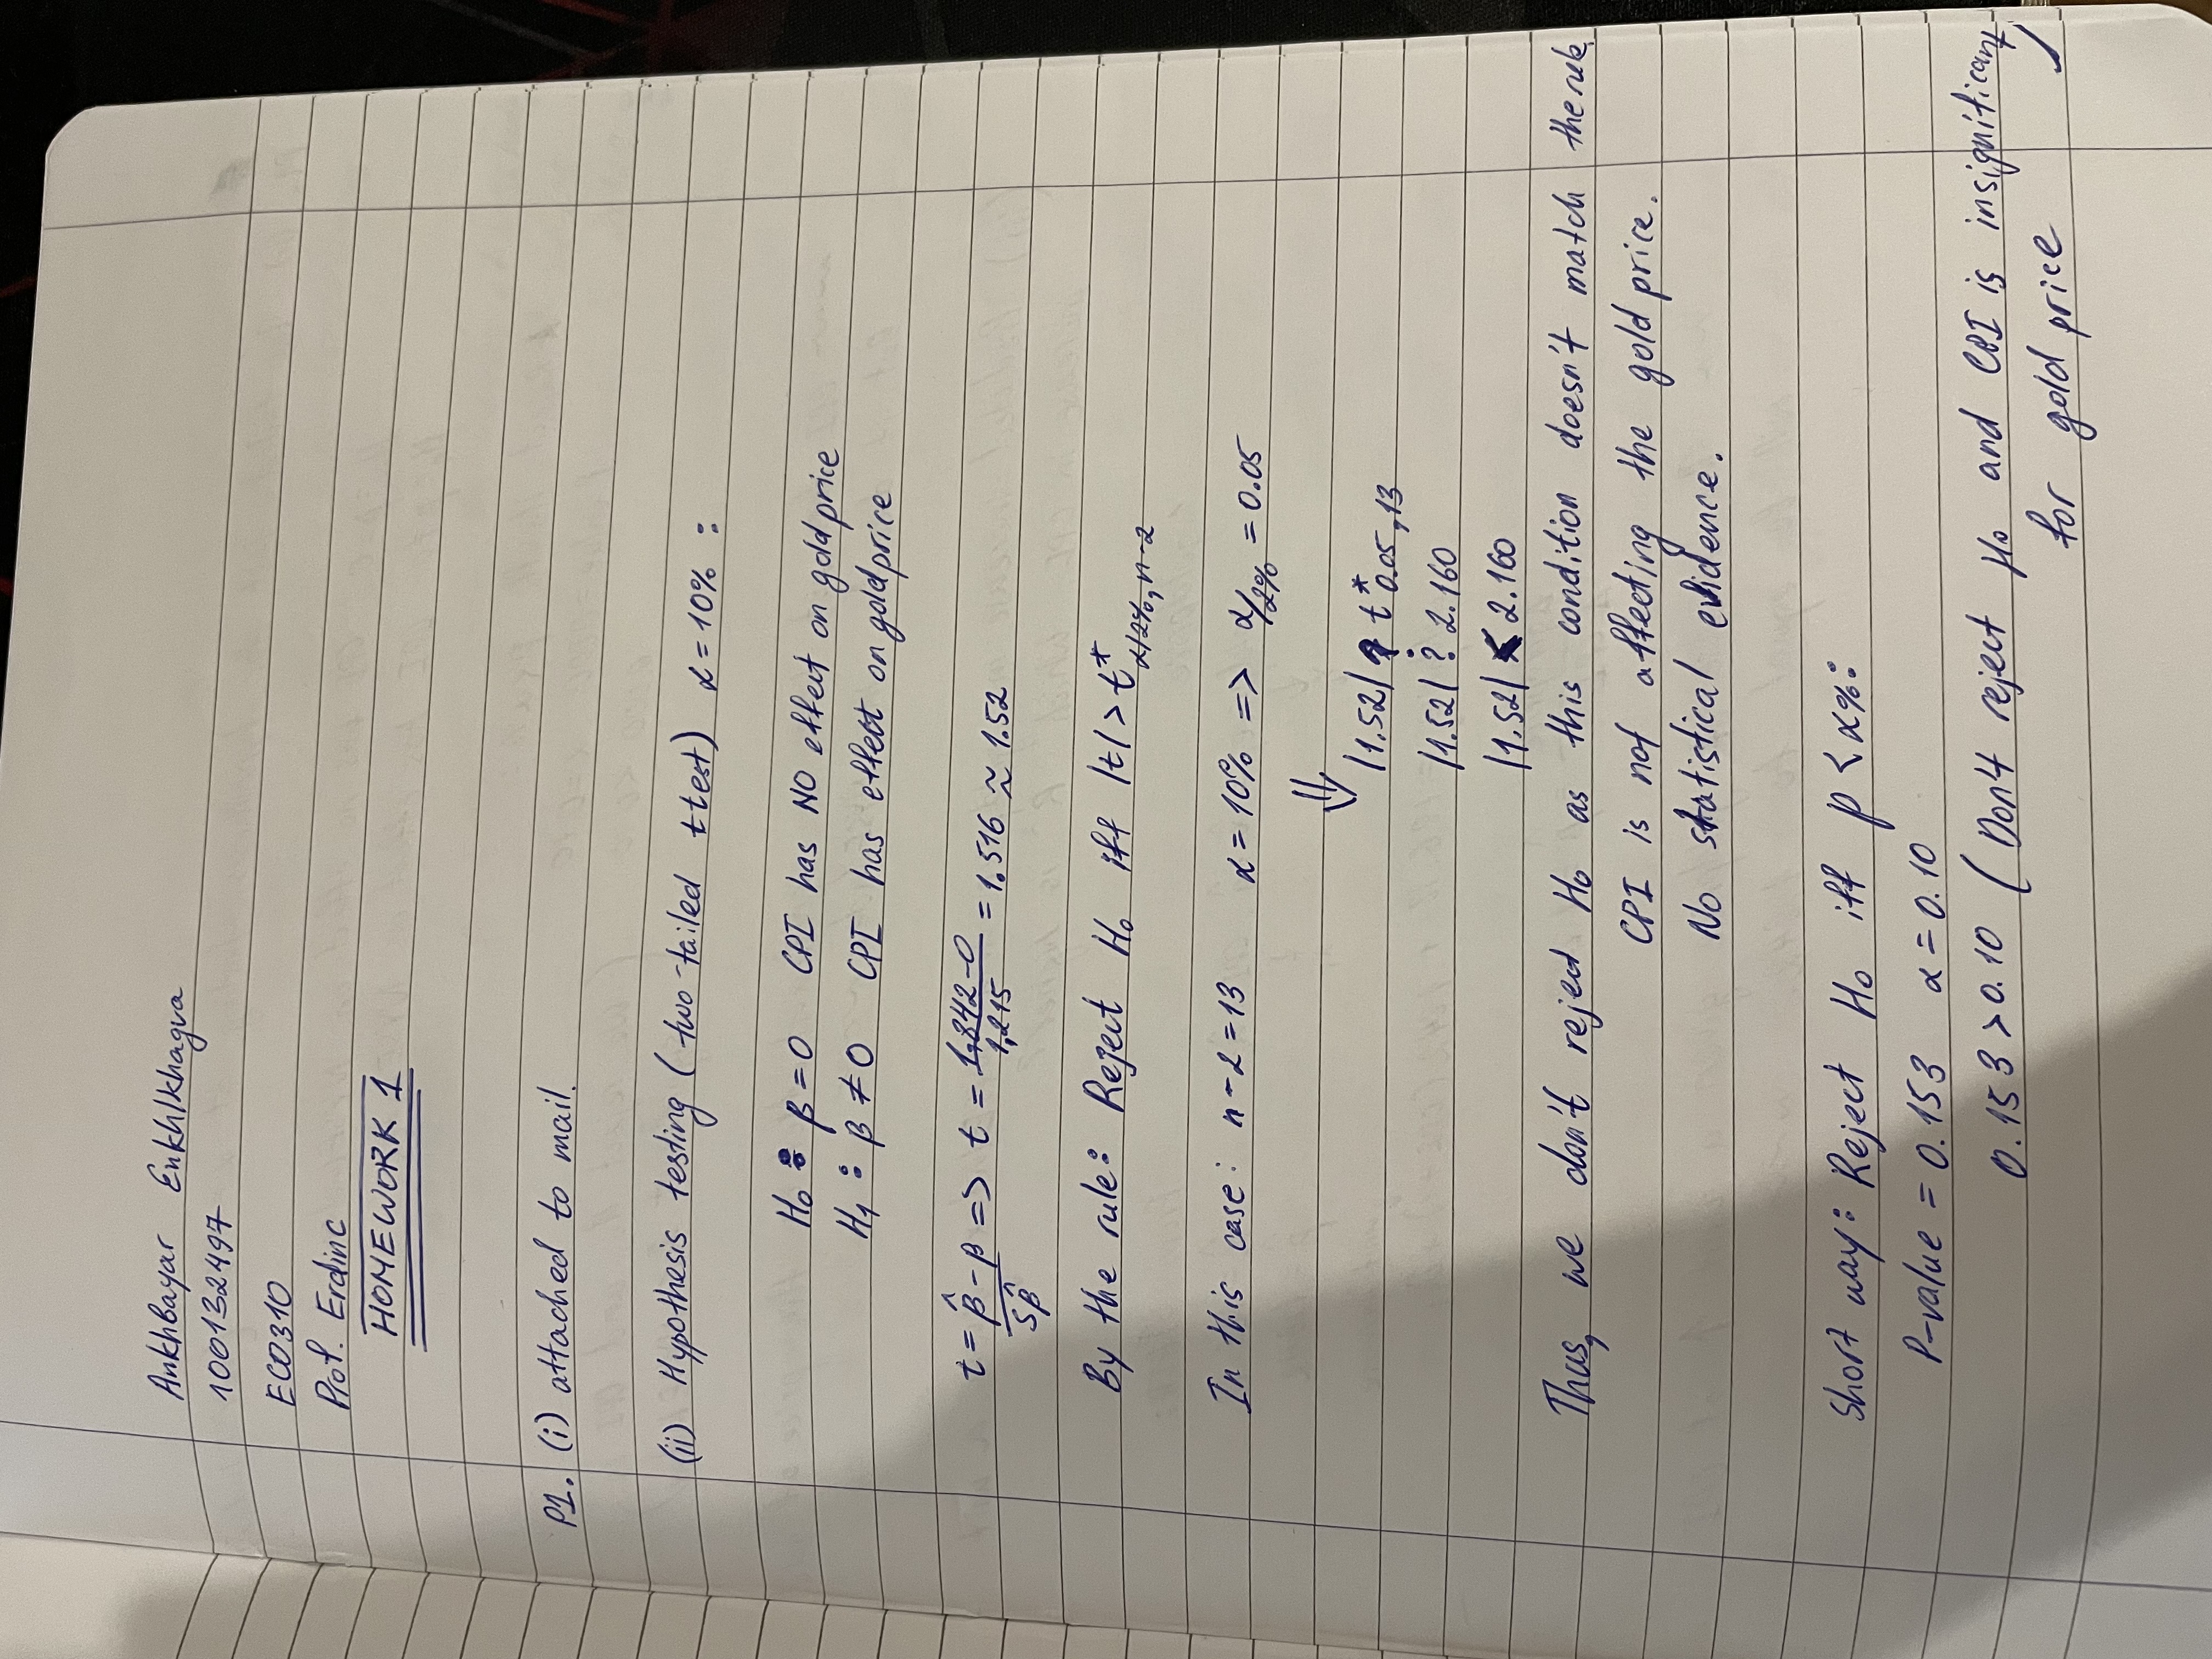 AnkhBayar Enkhlkhagva
100132497
ECO310
Prof. Erdinc
HOMEWORK 1
P1. (i) attached to mail.
(ii) Hypothesis testing (two-tailed ttest) α=10% :
H₀ : β=0 CPI has NO effect on gold price
H₁ : β≠0 CPI has effect on gold price
t = β̂-β / Sβ̂ => t = 1,842-0 / 1,215 = 1.516 ≈ 1.52
By the rule: Reject H₀ iff |t| > t*α/2%, n-2
In this case: n-2=13 α=10% => α/2% = 0.05
⇓
|1.52| ? t*0.05,13
|1.52| ? 2.160
|1.52| < 2.160
Thus, we don't reject H₀ as this condition doesn't match the rule.
CPI is not affecting the gold price.
No statistical evidence.
Short way: Reject H₀ iff p < α%:
P-value = 0.153 α=0.10
0.153 > 0.10 (Don't reject H₀ and CPI is insignificant
for gold price )